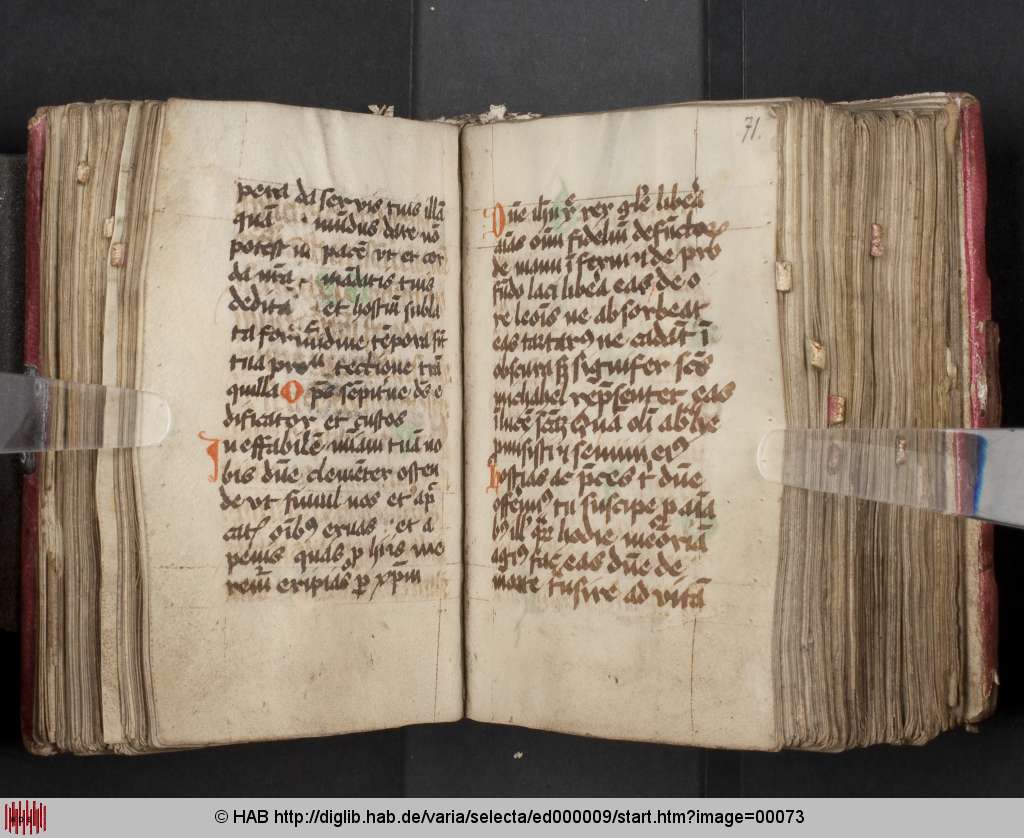 pera da servis tuis illā
quā mūdus dare nō
potest in pacē vt et cor
da nr̄a mādatis tuis
dedita et hostiū subla
ta formidine tēpora sīt
tua protectione trā
quilla O
dificator et custos
Ineffabilē miam tuā no
bis dn̄e clemēter osten
de vt simul nos et a p̄
catꝭ oībꝫ exuas et a
penis quas ꝓ hiis me
remʳ eripias ꝑ xp̄m
71.
Dn̄e ih̄u xp̄e rex glē libera
aīas oīm fidelīū defūctoꝝ
de manu īferni et de pro
fūdo laci libera eas de o
re leoīs ne absorbeat
eas tartarꝰ ne cadāt ī
obscura sꝫ signifer scs̄
michahel rep̄sentet eas
ī lucē scām Quā olī abrhe
promisisti et semini eiꝰ
Hostias ac p̄ces t dn̄e
offerimꝰ tu suscipe ꝓ aīa
bꝫ illꝭ qrꝫ hodie meōriā
agimꝰ fac eas dn̄e de
morte tnsire ad vitā
© HAB http://diglib.hab.de/varia/selecta/ed000009/start.htm?image=00073